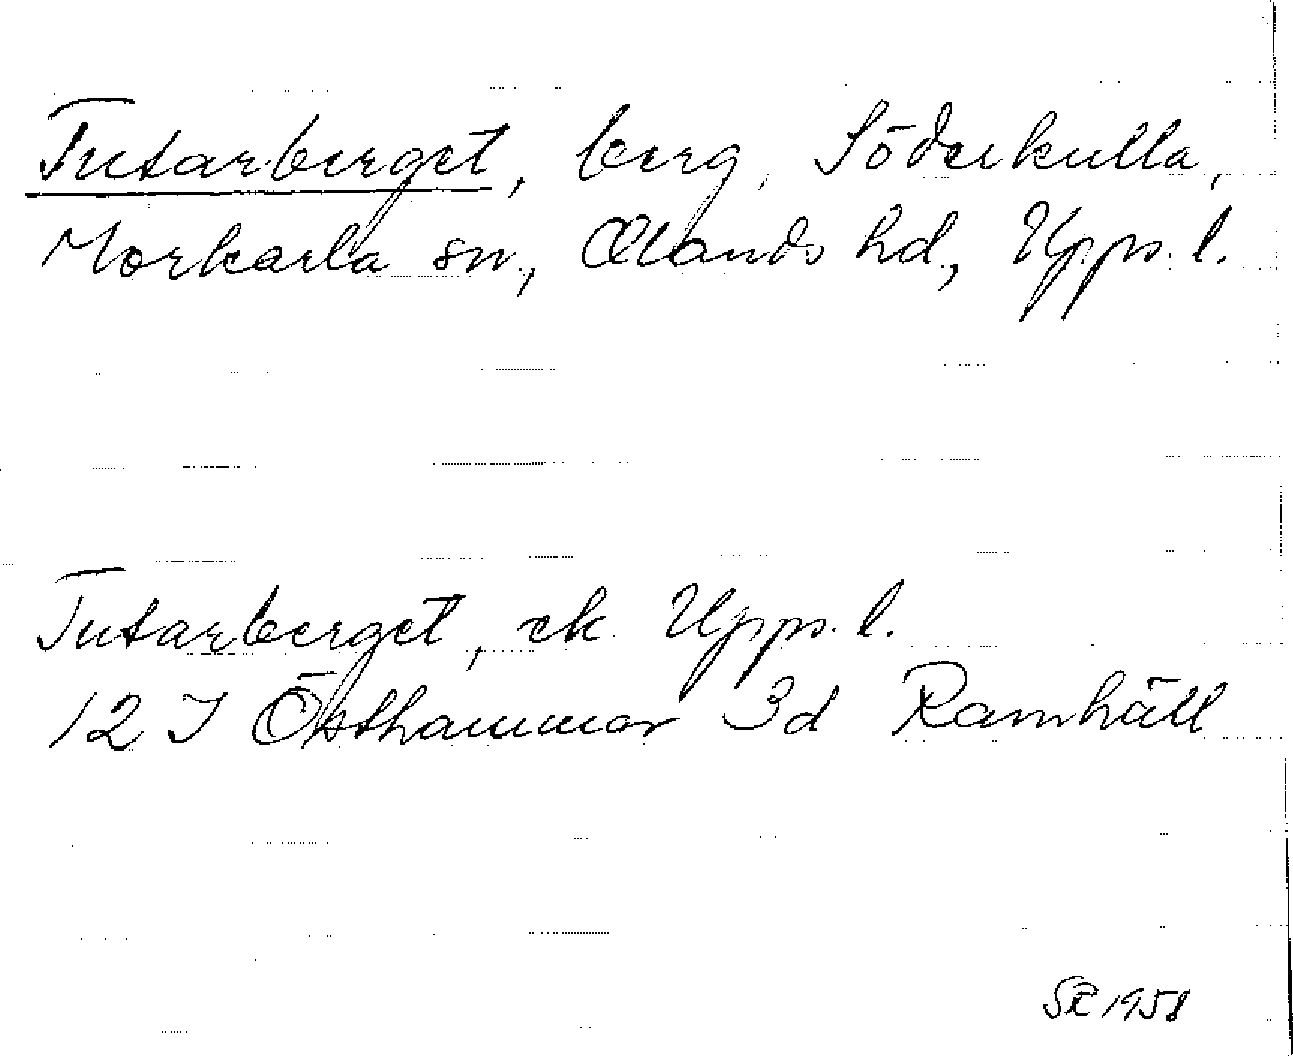 Tutarberget, berg, Söderkulla,
Morkarla sn, Olands hd, Upps. l.
Tutarberget, ek. Upps. l.
12 I Östhammar 3d Ramhäll
1958